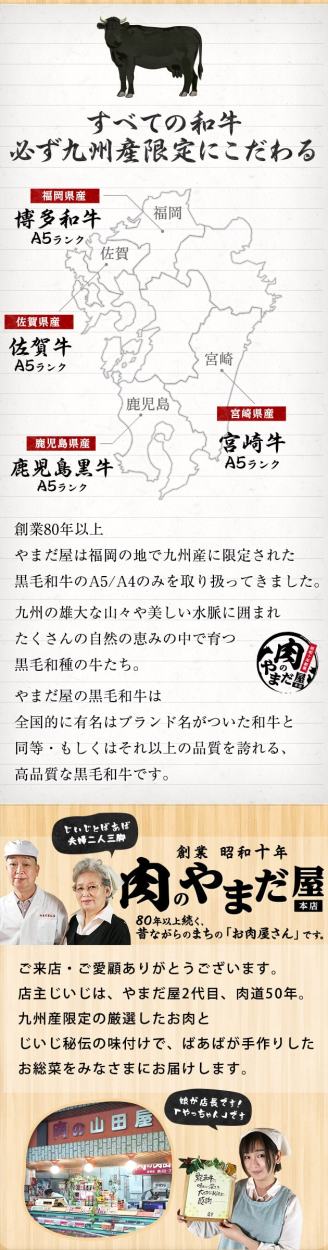 すべての和牛
必ず九州産限定にこだわる
福岡県産
博多和牛
A5ランク
福岡
佐賀
佐賀県産
佐賀牛
A5ランク
宮崎
鹿児島
宮崎県産
宮崎牛
A5ランク
鹿児島県産
鹿児島黒牛
A5ランク
創業80年以上
やまだ屋は福岡の地で九州産に限定された
黒毛和牛のA5/A4のみを取り扱ってきました。
九州の雄大な山々や美しい水脈に囲まれ
たくさんの自然の恵みの中で育つ
黒毛和種の牛たち。
肉の
やまだ屋
やまだ屋の黒毛和牛は
全国的に有名はブランド名がついた和牛と
同等・もしくはそれ以上の品質を誇れる、
高品質な黒毛和牛です。
じいじとばあば
夫婦二人三脚
創業 昭和十年
肉のやまだ屋
本店
80年以上続く、
昔ながらのまちの「お肉屋さん」です。
ご来店・ご愛顧ありがとうございます。
店主じいじは、やまだ屋2代目、肉道50年。
九州産限定の厳選したお肉と
じいじ秘伝の味付けで、ばあばが手作りした
お総菜をみなさまにお届けします。
娘が店長です!
「やっちゃん」です
肉の山田屋
感謝